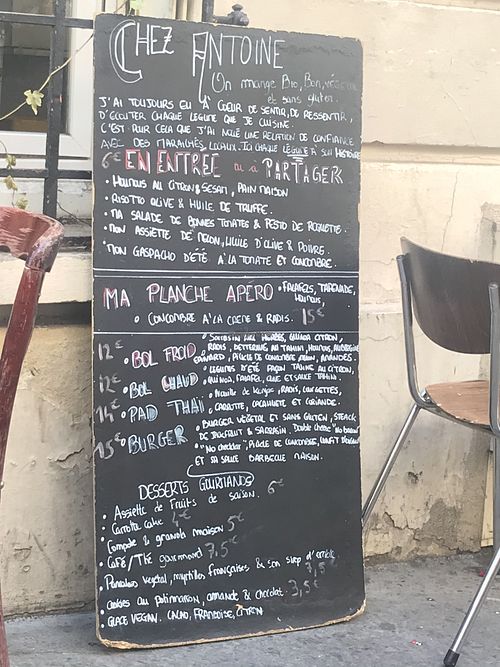 CHEZ ANTOINE
On mange Bio, Bon, végétal
et sans gluten.
J'AI TOUJOURS EU À COEUR DE SENTIR, DE RESSENTIR,
D'ÉCOUTER CHAQUE LÉGUME QUE JE CUISINE.
C'EST POUR CELA QUE J'AI NOUÉ UNE RELATION DE CONFIANCE
AVEC DES MARAÎCHERS LOCAUX. ICI CHAQUE LÉGUME À SON HISTOIRE
6€ EN ENTRÉE ou à PARTAGER
• HOUMOUS AU CITRON & SESAM, PAIN MAISON
• RISOTTO OLIVE & HUILE DE TRUFFE.
• MA SALADE DE BONNES TOMATES & PESTO DE ROQUETTE.
• MON ASSIETTE DE MELON, HUILE D'OLIVE & POIVRE.
• MON GASPACHO D'ÉTÉ À LA TOMATE ET CONCOMBRE.
MA PLANCHE APERO • FALAFELS, TAPENADE,
HOUMOUS,
• CONCOMBRE À LA CREME & RADIS. 15€
CITRON,
12€ • BOL FROID RADIS, BETTERAVE AU TAHINI, HOUMOUS, AUBERGINE
PICKLE DE CONCOMBRE AMANDES.
• LEGUMES D'ÉTÉ FAÇON TAJINE AU CITRON,
12€ • BOL CHAUD QUINOA, FALAFEL, ET SAUCE TAHINI.
• Nouille de RADIS, COURGETTES,
14€ • PAD THAÏ CAROTTE, CACAHUETE ET CORIANDE.
• BURGER VEGETAL ET SANS GLUTEN, STEACK
15€ • BURGER DE & SARRASIN. Double cheese
"No cheddar", PICKLE DE CONCOMBRE, CONFIT D'OIGNON
ET SA SAUCE BARBECUE MAISON.
DESSERTS GOURMANDS
• Assiette de Fruits de saison. 6€
• Carrotte cake 4€
• Compote & granola maison 5€
• Café/Thé gourmand 7,5€
• Pancakes vegetal, myrtilles françaises & son sirop d'érable
• Cookies au potimarron, amande & chocolat. 3,5€
• GLACE VEGAN. CACAO, FRAMBOISE, CITRON